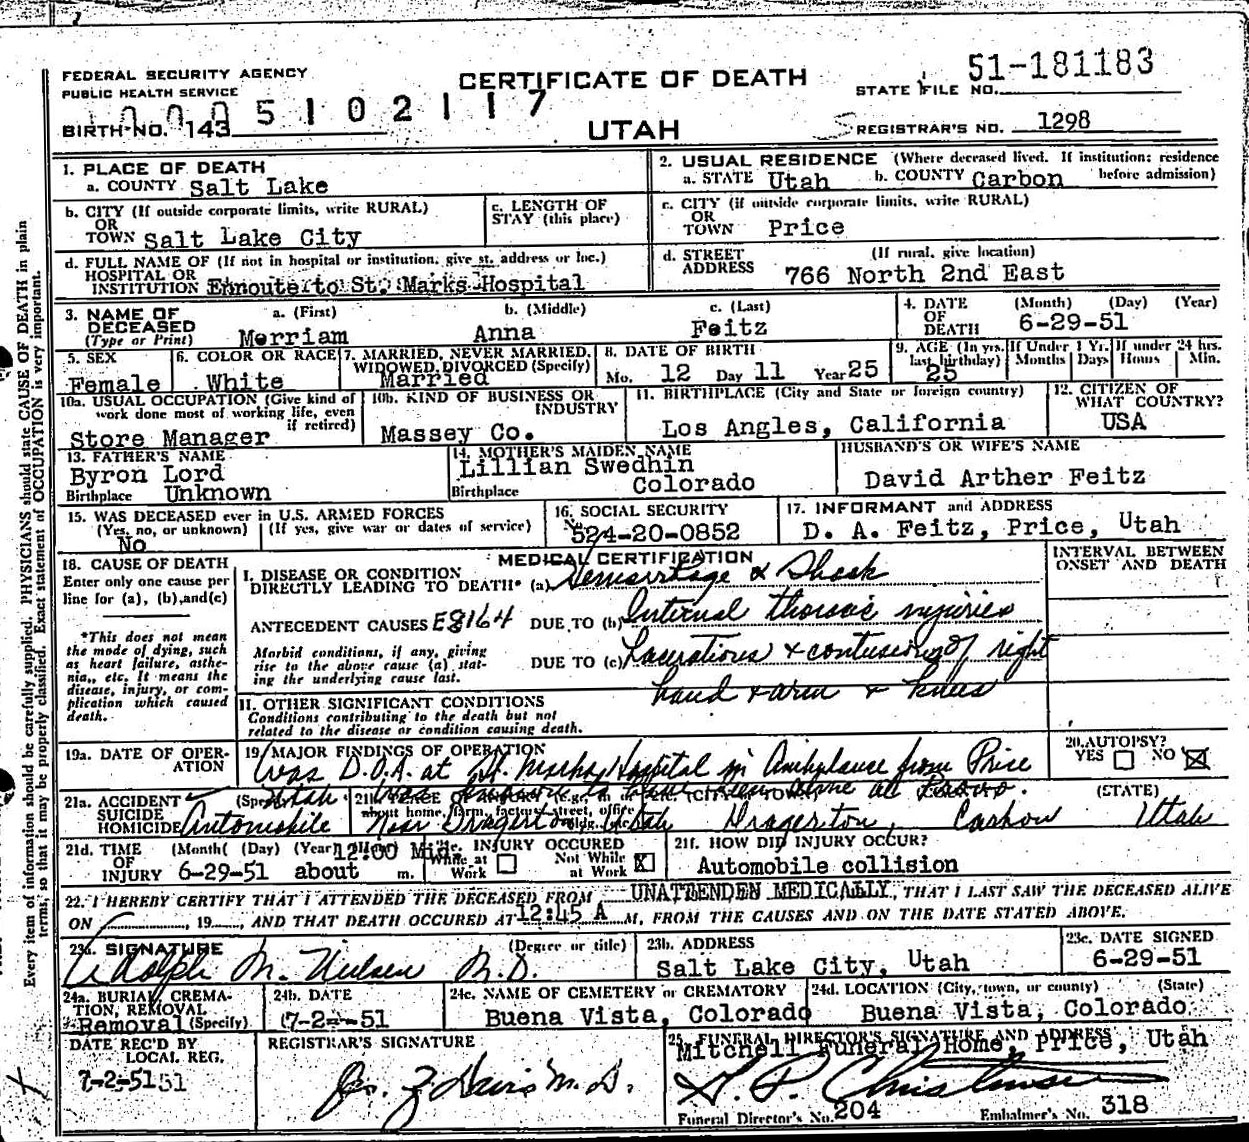 FEDERAL SECURITY AGENCY
PUBLIC HEALTH SERVICE
CERTIFICATE OF DEATH
STATE FILE NO. 51-181183
BIRTH NO. 143
5102117
UTAH
REGISTRAR'S NO. 1298
1. PLACE OF DEATH
a. COUNTY Salt Lake
2. USUAL RESIDENCE (Where deceased lived. If institution: residence before admission)
a. STATE Utah b. COUNTY Carbon
b. CITY (If outside corporate limits, write RURAL)
OR
TOWN Salt Lake City
c. LENGTH OF
STAY (this place)
c. CITY (if outside corporate limits, write RURAL)
OR
TOWN Price
d. FULL NAME OF (If not in hospital or institution, give st. address or loc.)
HOSPITAL OR
INSTITUTION Ennoute to St. Marks Hospital
d. STREET
ADDRESS
(If rural, give location)
766 North 2nd East
3. NAME OF
DECEASED
(Type or Print)
a. (First) b. (Middle) c. (Last)
Merriam Anna Feitz
4. DATE
OF
DEATH
(Month) (Day) (Year)
6-29-51
5. SEX
Female
6. COLOR OR RACE
White
7. MARRIED, NEVER MARRIED,
WIDOWED, DIVORCED (Specify)
Married
8. DATE OF BIRTH
Mo. 12 Day 11 Year 25
9. AGE (In yrs.
last birthday)
25
If Under 1 Yr.
Months Days
If under 24 hrs.
Hours Min.
10a. USUAL OCCUPATION (Give kind of
work done most of working life, even
if retired)
Store Manager
10b. KIND OF BUSINESS OR
INDUSTRY
Massey Co.
11. BIRTHPLACE (City and State or foreign country)
Los Angles, California
12. CITIZEN OF
WHAT COUNTRY?
USA
13. FATHER'S NAME
Byron Lord
Birthplace Unknown
14. MOTHER'S MAIDEN NAME
Lillian Swedhin
Birthplace Colorado
HUSBAND'S OR WIFE'S NAME
David Arther Feitz
15. WAS DECEASED ever in U.S. ARMED FORCES
(Yes, no, or unknown) (If yes, give war or dates of service)
No
16. SOCIAL SECURITY
No. 524-20-0852
17. INFORMANT and ADDRESS
D. A. Feitz, Price, Utah
18. CAUSE OF DEATH
Enter only one cause per
line for (a), (b), and (c)
*This does not mean
the mode of dying, such
as heart failure, asthe-
nia, etc. It means the
disease, injury, or com-
plication which caused
death.
MEDICAL CERTIFICATION
INTERVAL BETWEEN
ONSET AND DEATH
I. DISEASE OR CONDITION
DIRECTLY LEADING TO DEATH* (a) Hemorrhage & Shock
ANTECEDENT CAUSES E8164 DUE TO (b) Internal thoracic injuries
Morbid conditions, if any, giving
rise to the above cause (a) stat-
ing the underlying cause last.
DUE TO (c) Lacerations & contusions of right
hand & arm & knees
II. OTHER SIGNIFICANT CONDITIONS
Conditions contributing to the death but not
related to the disease or condition causing death.
19a. DATE OF OPER-
ATION
19 MAJOR FINDINGS OF OPERATION
Was D.O.A. at St. Marks Hospital in Ambulance from Price
Utah
20. AUTOPSY?
YES NO X
21a. ACCIDENT
SUICIDE
HOMICIDE
Automobile
Near Dragerton Utah
Dragerton, Carbon Utah
(STATE)
21d. TIME
OF
INJURY
(Month) (Day) (Year)
12:00 Mid
6-29-51 about m.
INJURY OCCURED
While at
Work
Not While
at Work X
21f. HOW DID INJURY OCCUR?
Automobile collision
22. I HEREBY CERTIFY THAT I ATTENDED THE DECEASED FROM UNATTENDEN MEDICALLY, THAT I LAST SAW THE DECEASED ALIVE
ON , 19 , AND THAT DEATH OCCURED AT 12:45 A M, FROM THE CAUSES AND ON THE DATE STATED ABOVE.
23a. SIGNATURE (Degree or title)
Adolph M. Nielsen M.D.
23b. ADDRESS
Salt Lake City, Utah
23c. DATE SIGNED
6-29-51
24a. BURIAL, CREMA-
TION, REMOVAL
Removal (Specify)
24b. DATE
7-2-51
24c. NAME OF CEMETERY or CREMATORY
Buena Vista, Colorado
24d. LOCATION (City, town, or county) (State)
Buena Vista, Colorado
DATE REC'D BY
LOCAL REG.
7-2-51 51
REGISTRAR'S SIGNATURE
M. D.
25. FUNERAL DIRECTOR'S SIGNATURE AND ADDRESS
Mitchell Funeral Home, Price, Utah
Funeral Director's No. 204 Embalmer's No. 318
Every item of information should be carefully supplied. PHYSICIANS should state CAUSE OF DEATH in plain
terms, so that it may be properly classified. Exact statement of OCCUPATION is very important.